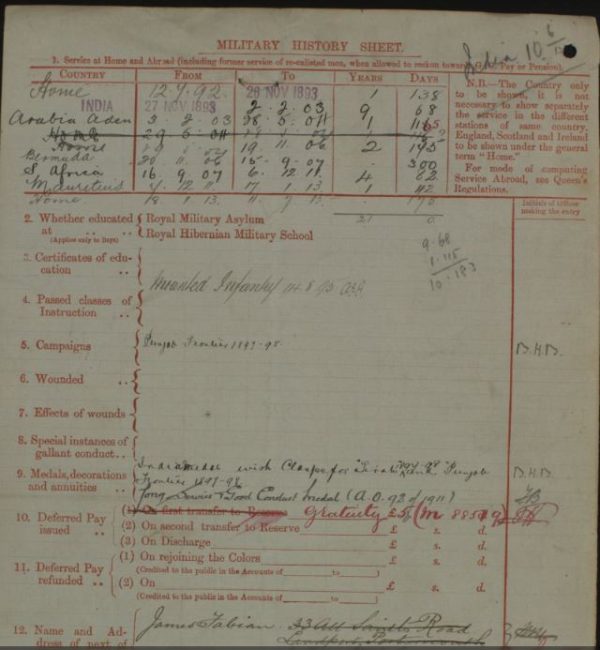 India 10 6
MILITARY HISTORY SHEET.
1. Service at Home and Abroad (including former service of re-enlisted men, when allowed to reckon towards G.C. Pay or Pension).
COUNTRY FROM TO YEARS DAYS
Home 12.7.92 26 NOV 1893 1 138
INDIA 27 NOV 1893 2.2.03 9 68
Arabia Aden 3.2.03 28.5.04 1 115
Home 29.5.04
Home 19 11 06 2 175
Bermuda 20 11 06 15.9.07 300
S. Africa 16.9.07 6.12.11 4 82
Mauritius 7.12.11 17.1.13 1 42
Home 18.1.13 11.7.13 175
21 0
N.B.—The Country only
to be shown, it is not
necessary to show separately
the service in the different
stations of same country,
England, Scotland and Ireland
to be shown under the general
term "Home."
For mode of computing
Service Abroad, see Queen's
Regulations.
Initials of officer
making the entry
2. Whether educated
at
(Applies only to Boys)
Royal Military Asylum
Royal Hibernian Military School
9.68
1.115
10.183
3. Certificates of edu-
cation
Mounted Infantry
4. Passed classes of
Instruction
5. Campaigns Punjab Frontier 1897-98 B.H.B.
6. Wounded
7. Effects of wounds
8. Special instances of
gallant conduct
9. Medals, decorations
and annuities
India medal with Clasps for "Tirah 1897-98" "Punjab
Frontier 1897-98 B.H.B.
Long Service & Good Conduct Medal (A.O. 92 of 1911)
10. Deferred Pay
issued
(1) On first transfer to Reserve Gratuity £5
(2) On second transfer to Reserve £ s. d.
(3) On Discharge £ s. d.
11. Deferred Pay
refunded
(1) On rejoining the Colors £ s. d.
(Credited to the public in the Accounts of to )
(2) On £ s. d.
(Credited to the public in the Accounts of to )
12. Name and Ad-
dress of next of
James Fabian. 33 All Saints Road
Landport, Portsmouth